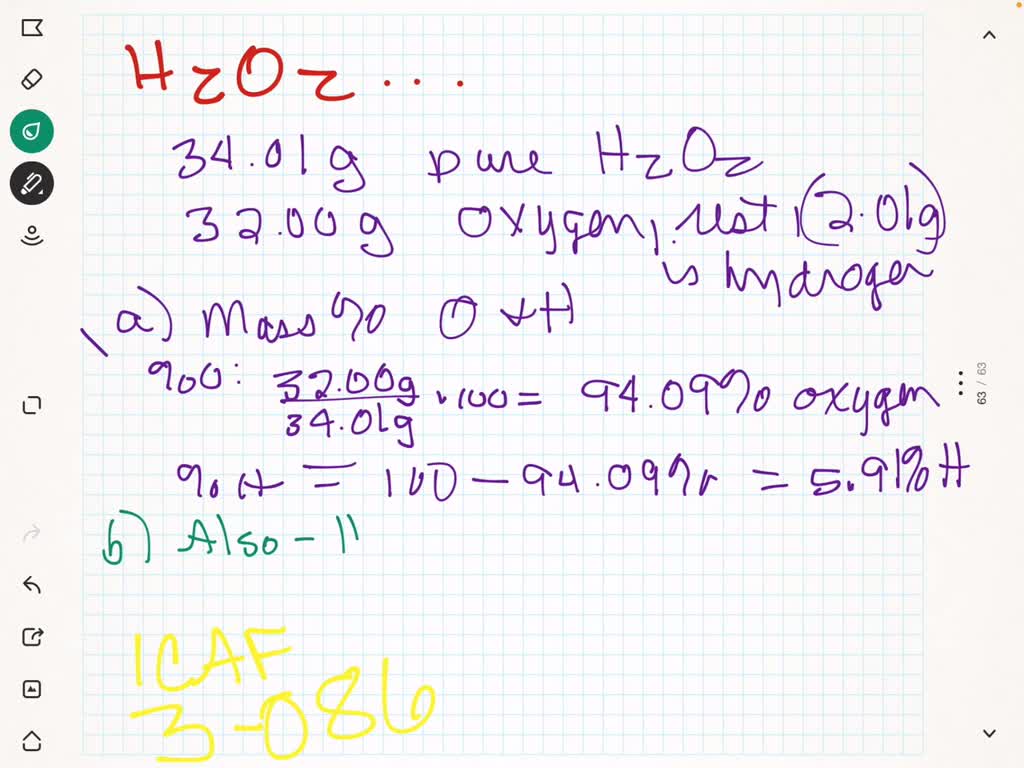 H2O2...
34.01g pure H2O2
32.00g oxygen, rest, (2.01g)
is hydrogen
a) Mass % O + H
%O: 32.00g / 34.01g · 100 = 94.09% oxygen
%H = 100 - 94.09% = 5.91% H
b) Also - 11
ICAF
3-086
63 / 63